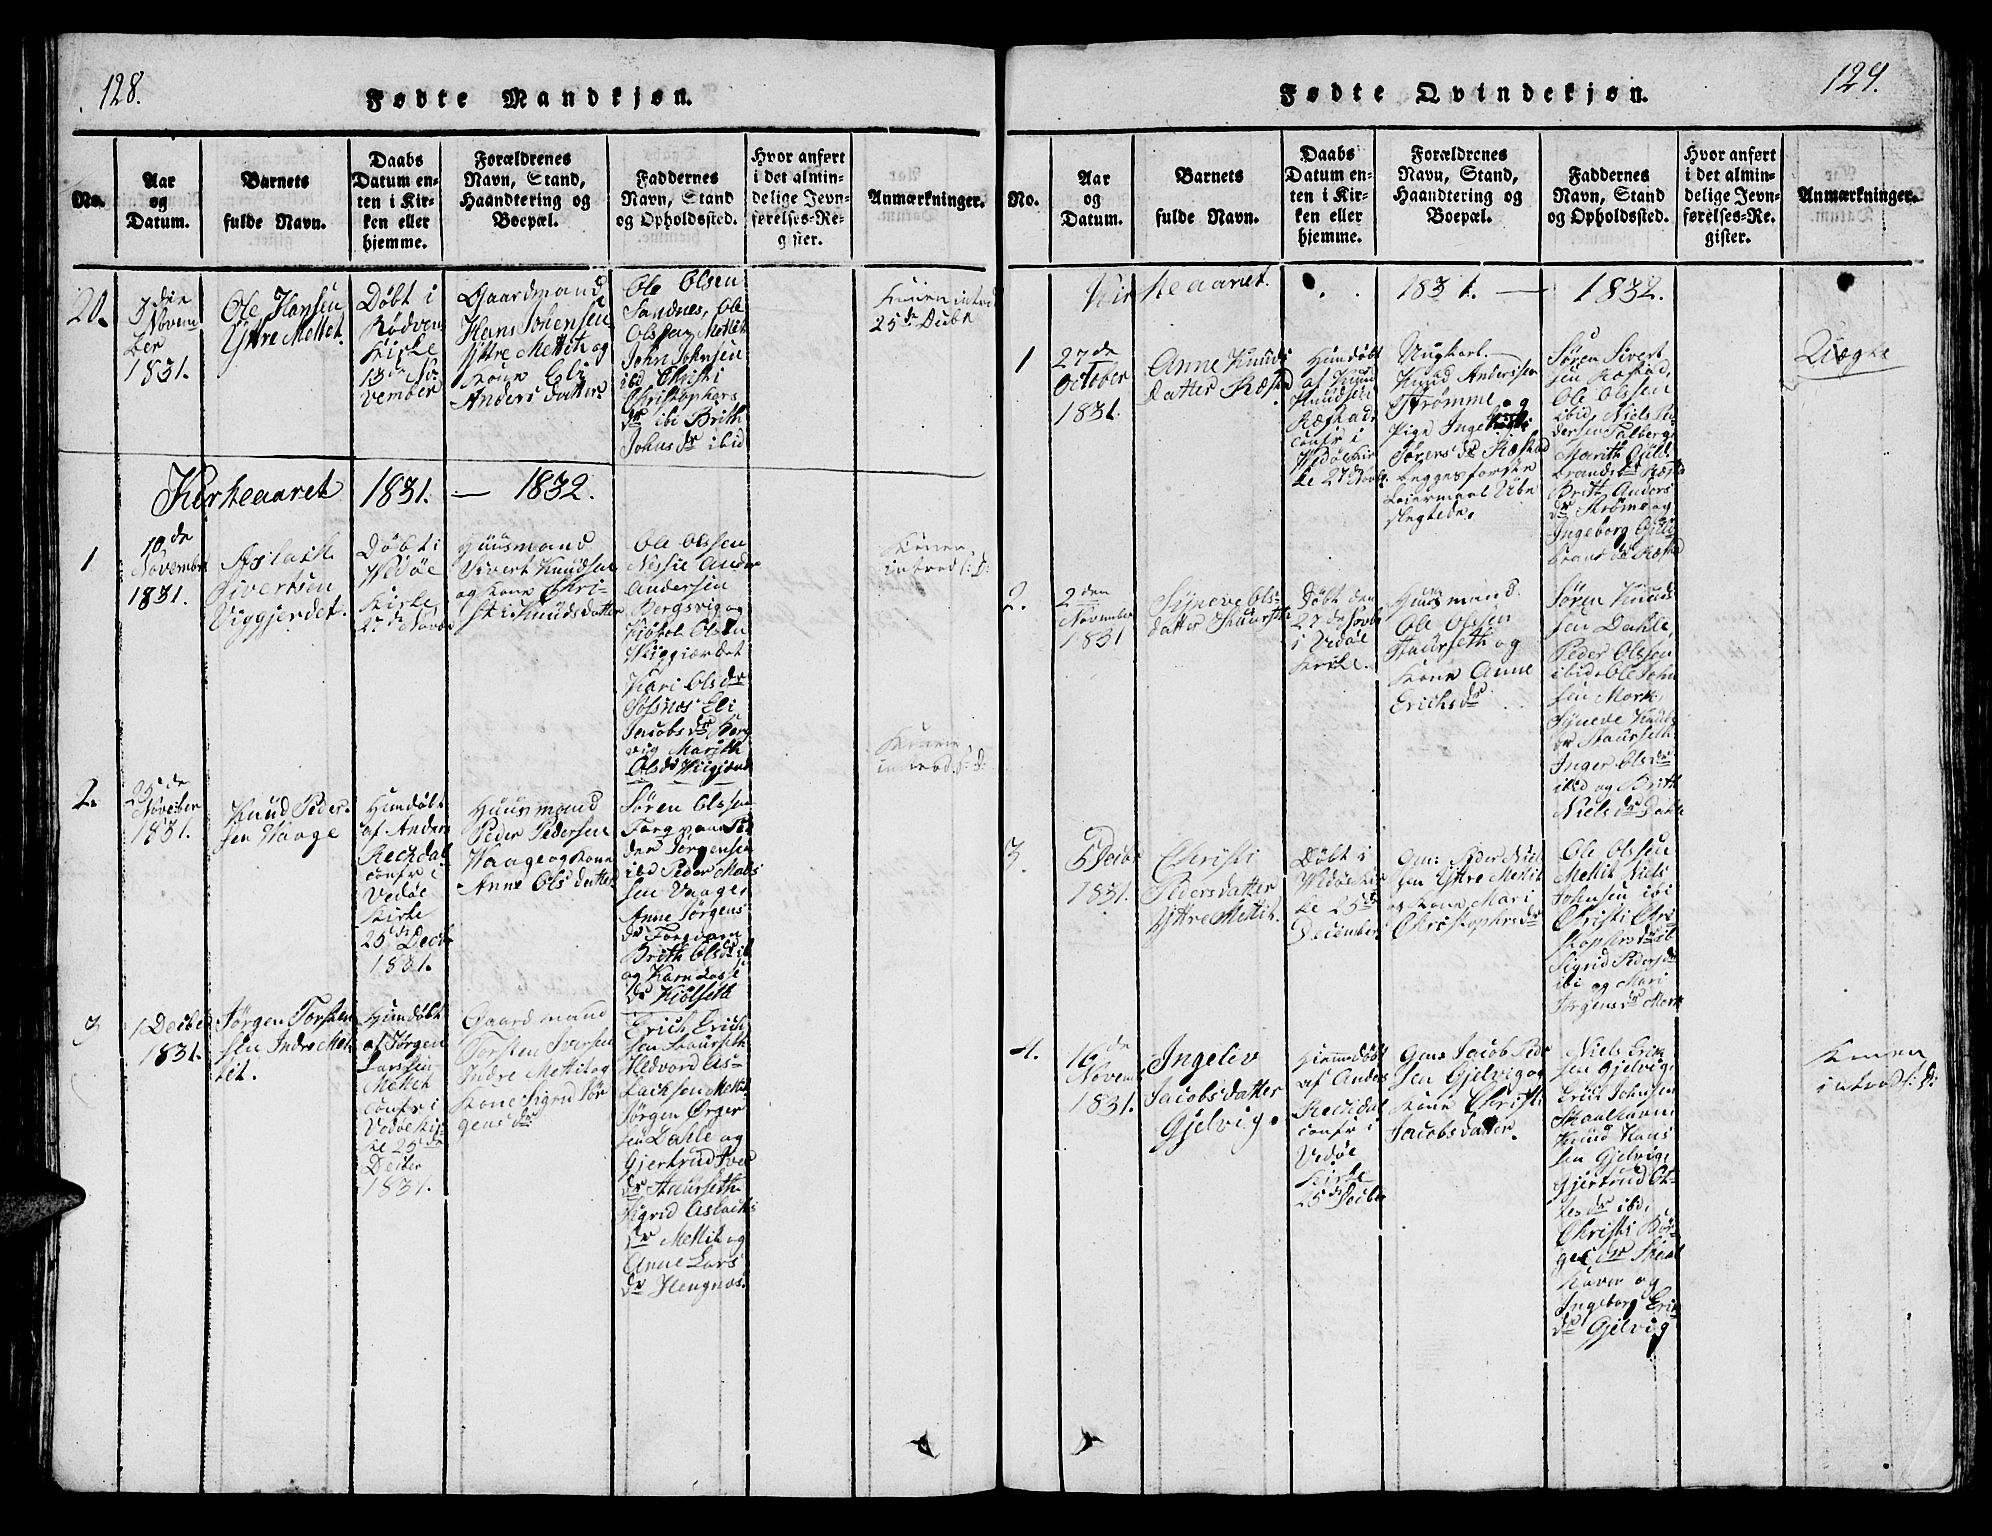 128.
Fødte Mandkjøn.
No.
Aar
og
Datum.
Barnets
fulde Navn.
Daabs
Datum en-
ten i Kir-
ken eller
hjemme.
Forældrenes
Navn, Stand,
Haandtering og
Boepæl.
Faddernes
Navn, Stand
og Opholdssted.
Hvor anført
i det almin-
delige Jevn-
førelses-Re-
gister.
Anmærkninger.
20.
3 die
Novem
ber
1831.
Ole Hansen
Yttre Mettet.
Døbt i
Rødven
Kirke
13 de No
vember
Gaardmand
Hans Johensen
Yttre Mettit og
Kone Eli
Anders datter
Ole Olsen
Sandnes, Ole
Olsen Mettit
John Johnsen
ibd Christi
Christophers
dr ibi Brith
Johns dr ibid
25 de
Kirkeaaret 1831. — 1832.
1
10 de
Novembr
1831.
Aslak
Sivertsen
Viggjerdet.
Døbt i
Wedøe
Kirke
27 Novbr
Huusmand
Sivert Knudsen
og Kone Chri-
sti Knudsdatter
Ole Olsen
Nessie Ander
Andersen
Bergsvig og
Olsen
Wiggiærdet
Kari Olsdr
Sosnes Eli
Jacobsdr Berg
vig Marith
Olsdr Wigjærde
Konen
introd. S: D:
2.
25 de
Novber
1831.
Knud Peder-
sen Waage
Hiemdøbt
af Anders
Reckdal
confr i
Vedøe
Kirke
25 de Decbr
1831.
Huusmand
Peder Pedersen
Waage og Kone
Anne Olsdatter
Søren Olsen
Torgvoen Pe
der Jørgensen
ibd Peder Mads
sen Vaage
Anne Jørgens
dr
Brith Olsdr ib
og Karn Lasse
dr Kiølseth
Konen
introd. S: D:
3
1 Decber
1831.
Jørgen Torsten
sen Indre Met-
tet.
Hiemdøbt
af Jørgen
Larssen
Mettet
confr i
Vedøe Kir-
ke 25 de
Decber
1831.
Gaardmand
Torsten Iversen
Indre Mettit og
Kone Sigrid Jør
gens dr
Erich Erich
sen Staurseth
Hedvord As-
lacksen Mettit
Jørgen Ørger
sen Dahle og
Gjertrud Iver
dr Staurseth
Sigrid Aslachs
dr Mettit og
Anne Lars
dr Hengnæs.
129.
Fødte Qvindekjøn.
No.
Aar
og
Datum.
Barnets
fulde Navn.
Daabs
Datum en-
ten i Kir-
ken eller
hjemme.
Forældrenes
Navn, Stand,
Haandtering og
Boepæl.
Faddernes
Navn, Stand
og Opholdssted.
Hvor anført
i det almin-
delige Jevn-
førelses-Re-
gister.
Anmærkninger.
Kirkeaaret. 1831. — 1832.
1
27 de
October
1831.
Anne Knuds
datter Ræstad
Hiemdøbt
af Knud
Knudsen
Ræstad
confr i
Wedøe Kir
ke 27 Novbr
Ungkarl
Knud Andersen
Strømme og
Pige Inge
Sørens dr Ræstad
begges første
Leiermaal Ube
slegtede.
Søren Sivert
sen Ræstad,
Ole Olsen
ibid, Niels Pe
dersen Talberg
Marith Guld
brandsdr Ræstad
Brith Anders
dr Strøme og
Ingeborg Guld
brands dr Ræstad
Uægte
2.
2 den
November
1831
Synneve Ols
datter Staurseth
Døbt den
27 de Novbr
i Vedøe
Kirke.
Huusmand.
Ole Olsen
Staurseth og
Kone Anne
Erichsdr
Søren Knud
sen Dahle,
Peder Olsen
ibid, Ole John
sen Mork,
Synneve Knuds
dr Staurseth
Inger Olsdr
ibid og Brith
Niels dr Dahle
3.
5 Decbr
1831.
Christi
Pedersdatter
Yttre Mettit.
Døbt i
Wedøe Kir
ke 25 de
December
Gm: Peder Niel
sen Yttre Mettit
og Kone Mari
Christophersdr
Ole Olsen
Mettit Niels
Johnsen ibi
Christi Chri-
stophers dr ib
Sigrid Peders dr
ibi og Mari
Jørgensdr Mork
4.
16 de
Novem
1831.
Ingelev
Jacobsdatter
Gjelvig.
Hiemdøbt
af Anders
Reckdal
confr i
Vedøe
Kirke
25 de Decbr
Gms Jacob Pede
sen Gjelvig og
Kone Christi
Jacobsdatter.
Niels Erik
sen Gjelvig
Erich Johnsen
Skaalhavn
Knud Hans
sen Gjelvig,
Gjertrud
dr ibid,
Christi Bør-
ges dr Skaal
havn og
Ingeborg Erik
dr Gjelvig
Konen
introd. S: D: